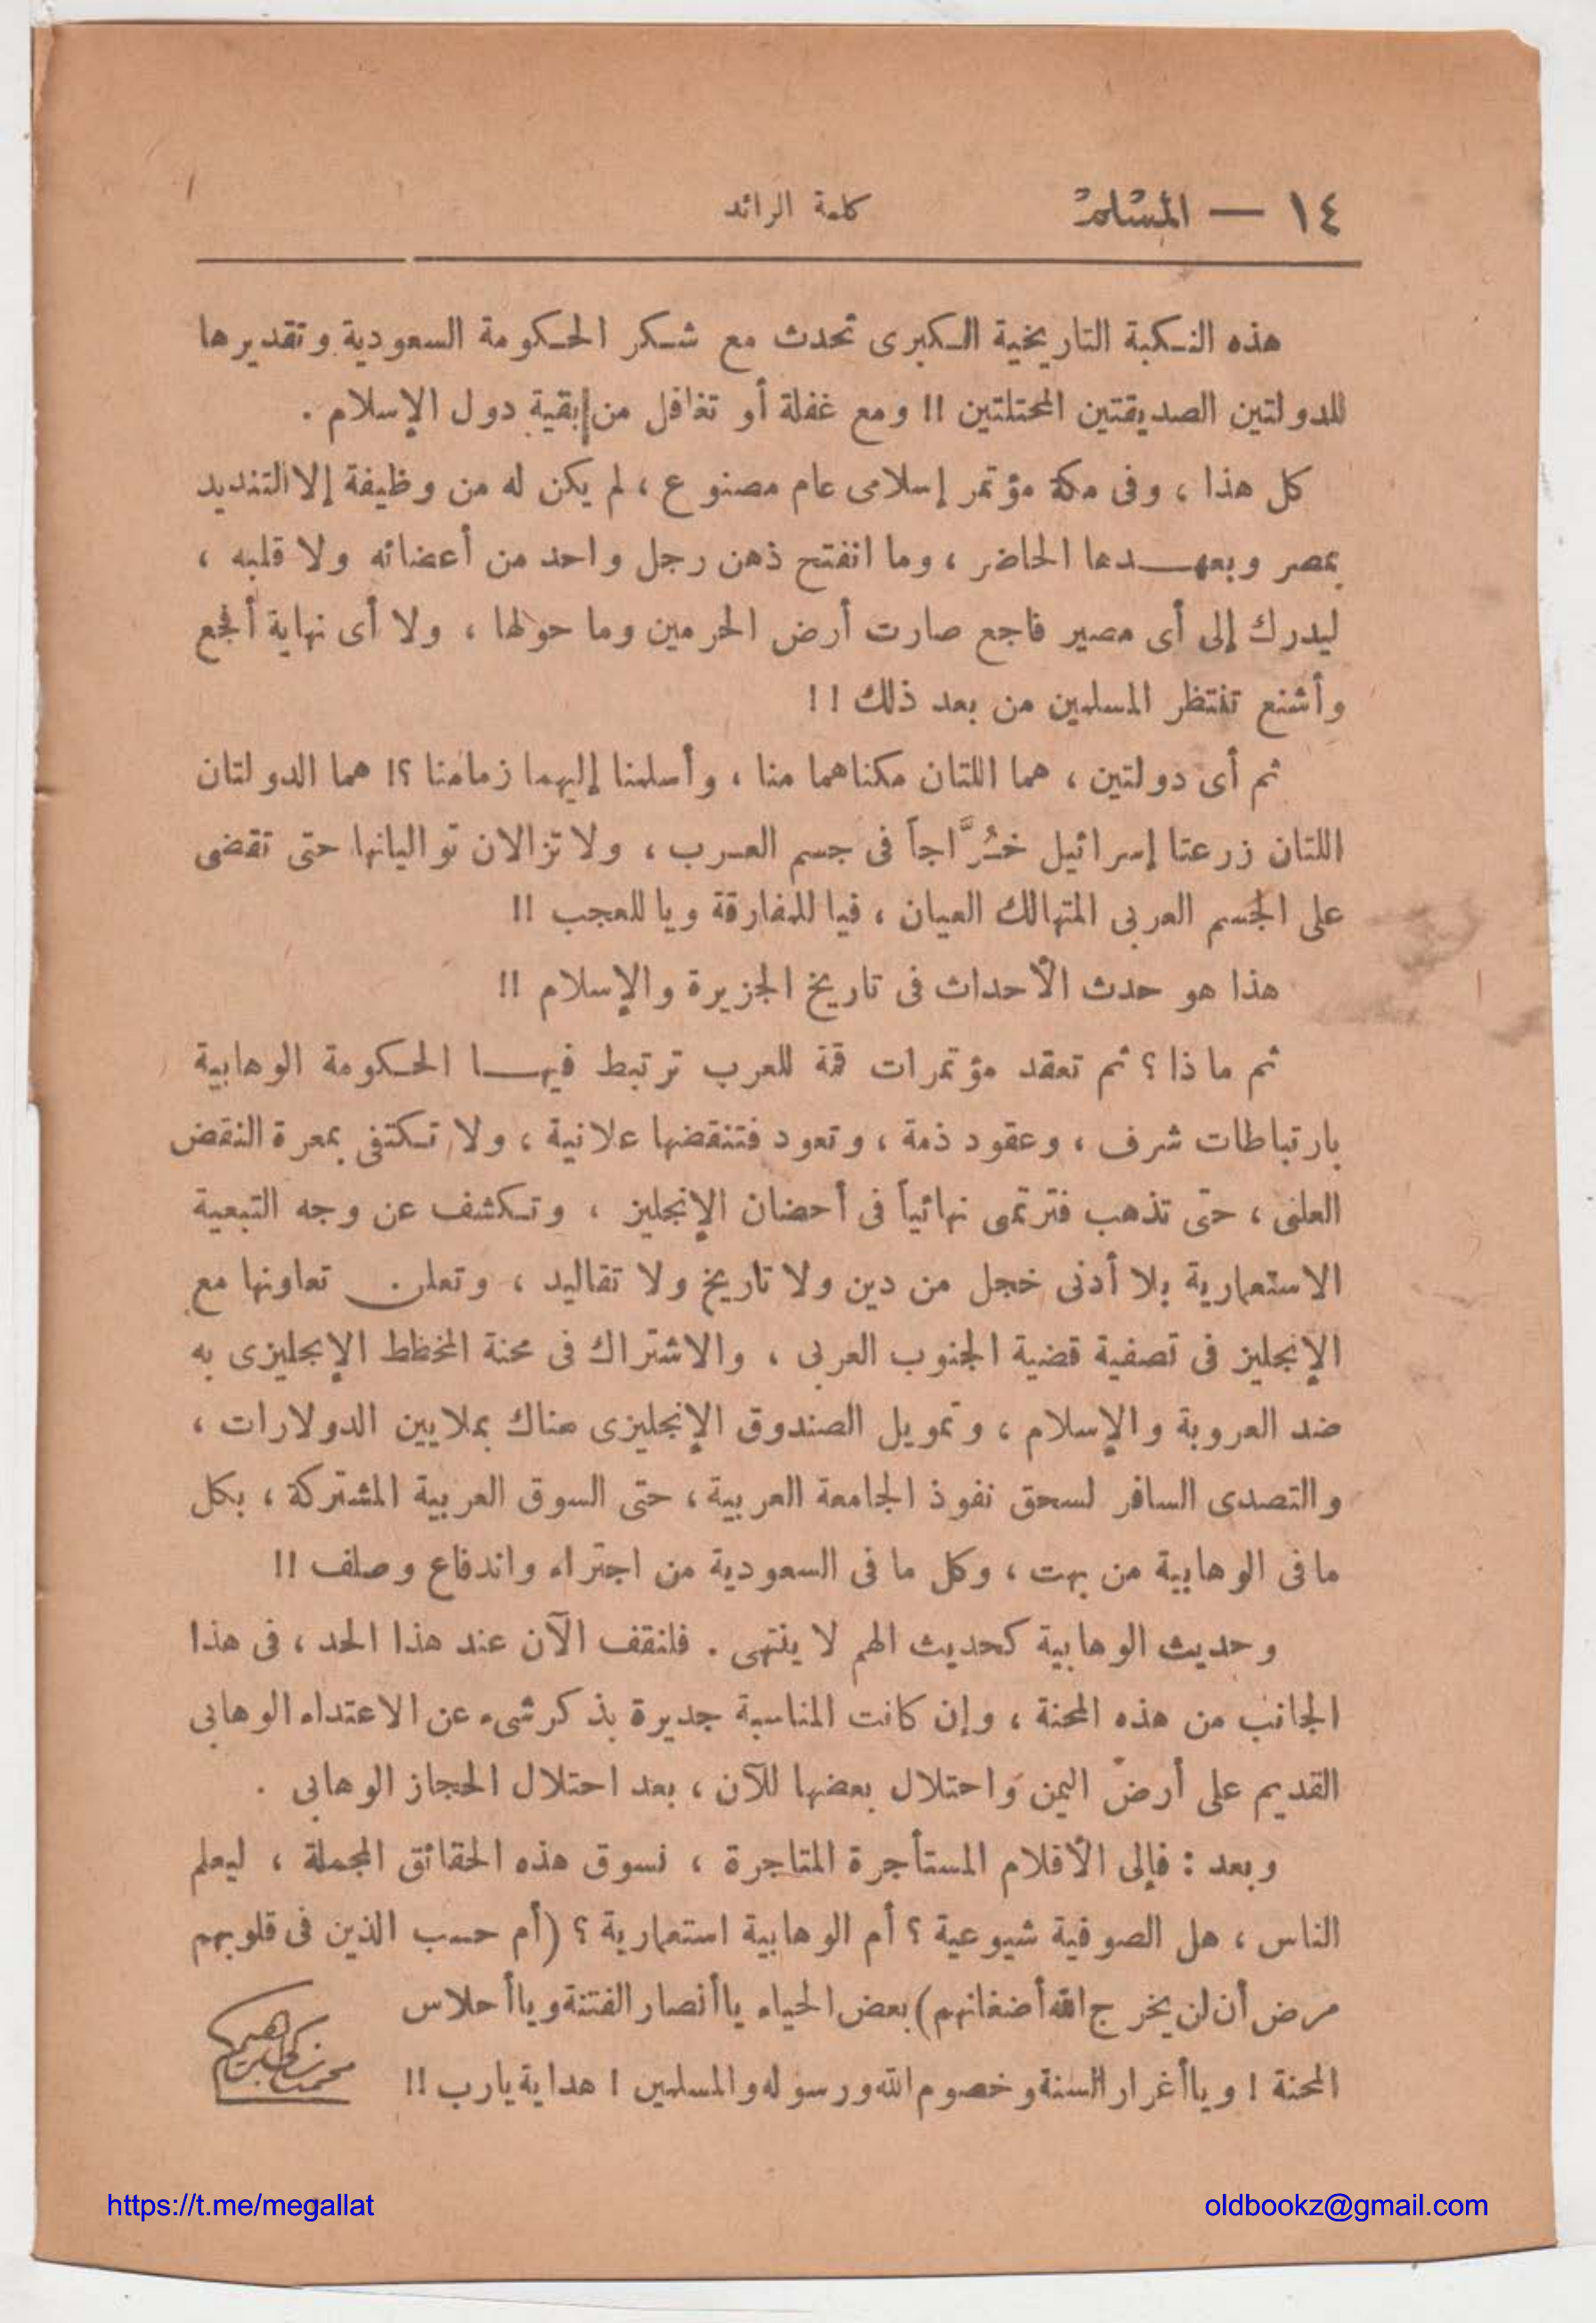 ١٤ — المسلم كلمة الرائد
هذه النكبة التاريخية الكبرى تحدث مع شكر الحكومة السعودية وتقديرها
للدولتين الصديقتين المحتلتين !! ومع غفلة أو تغافل من بقية دول الإسلام .
كل هذا ، وفى مكة مؤتمر إسلامى عام مصنوع ، لم يكن له من وظيفة إلا التنديد
بمصر وبعهدها الحاضر ، وما انفتح ذهن رجل واحد من أعضائه ولا قلبه ،
ليدرك إلى أى مصير فاجع صارت أرض الحرمين وما حولها ، ولا أى نهاية أفجع
وأشنع تنتظر المسلمين من بعد ذلك ! !
ثم أى دولتين ، هما اللتان مكناهما منا ، وأسلمنا إليهما زمامنا ؟! هما الدولتان
اللتان زرعتا إسرائيل خُرَّاجاً فى جسم العرب ، ولا تزالان تواليانها حتى تقضى
على الجسم العربى المتهالك العيان ، فيا للمفارقة ويا للعجب !!
هذا هو حدث الأحداث فى تاريخ الجزيرة والإسلام !!
ثم ماذا ؟ ثم تعقد مؤتمرات قمة للعرب ترتبط فيها الحكومة الوهابية
بارتباطات شرف ، وعقود ذمة ، وتعود فتنقضها علانية ، ولا تكتفى بمعرة النقض
العلنى ، حتى تذهب فترتمى نهائياً فى أحضان الإنجليز ، وتكشف عن وجه التبعية
الاستعمارية بلا أدنى خجل من دين ولا تاريخ ولا تقاليد ، وتعلن تعاونها مع
الإنجليز فى تصفية قضية الجنوب العربى ، والاشتراك فى محنة المخطط الإنجليزى به
ضد العروبة والإسلام ، وتمويل الصندوق الإنجليزى هناك بملايين الدولارات ،
والتصدى السافر لسحق نفوذ الجامعة العربية ، حتى السوق العربية المشتركة ، بكل
ما فى الوهابية من بهت ، وكل ما فى السعودية من اجتراء واندفاع وصلف !!
وحديث الوهابية كحديث الهم لا ينتهى . فلنقف الآن عند هذا الحد ، فى هذا
الجانب من هذه المحنة ، وإن كانت المناسبة جديرة بذكر شىء عن الاعتداء الوهابى
القديم على أرض اليمن واحتلال بعضها للآن ، بعد احتلال الحجاز الوهابى .
وبعد : فإلى الأقلام المستأجرة المتاجرة ، نسوق هذه الحقائق المجملة ، ليعلم
الناس ، هل الصوفية شيوعية ؟ أم الوهابية استعمارية ؟ (أم حسب الذين فى قلوبهم
مرض أن لن يخرج الله أضغانهم) بعض الحياء يا أنصار الفتنة ويا أحلاس
المحنة ! ويا أغرار السنة وخصوم الله ورسوله والمسلمين ! هداية يارب !!
محمد زكى إبراهيم
https://t.me/megallat oldbookz@gmail.com